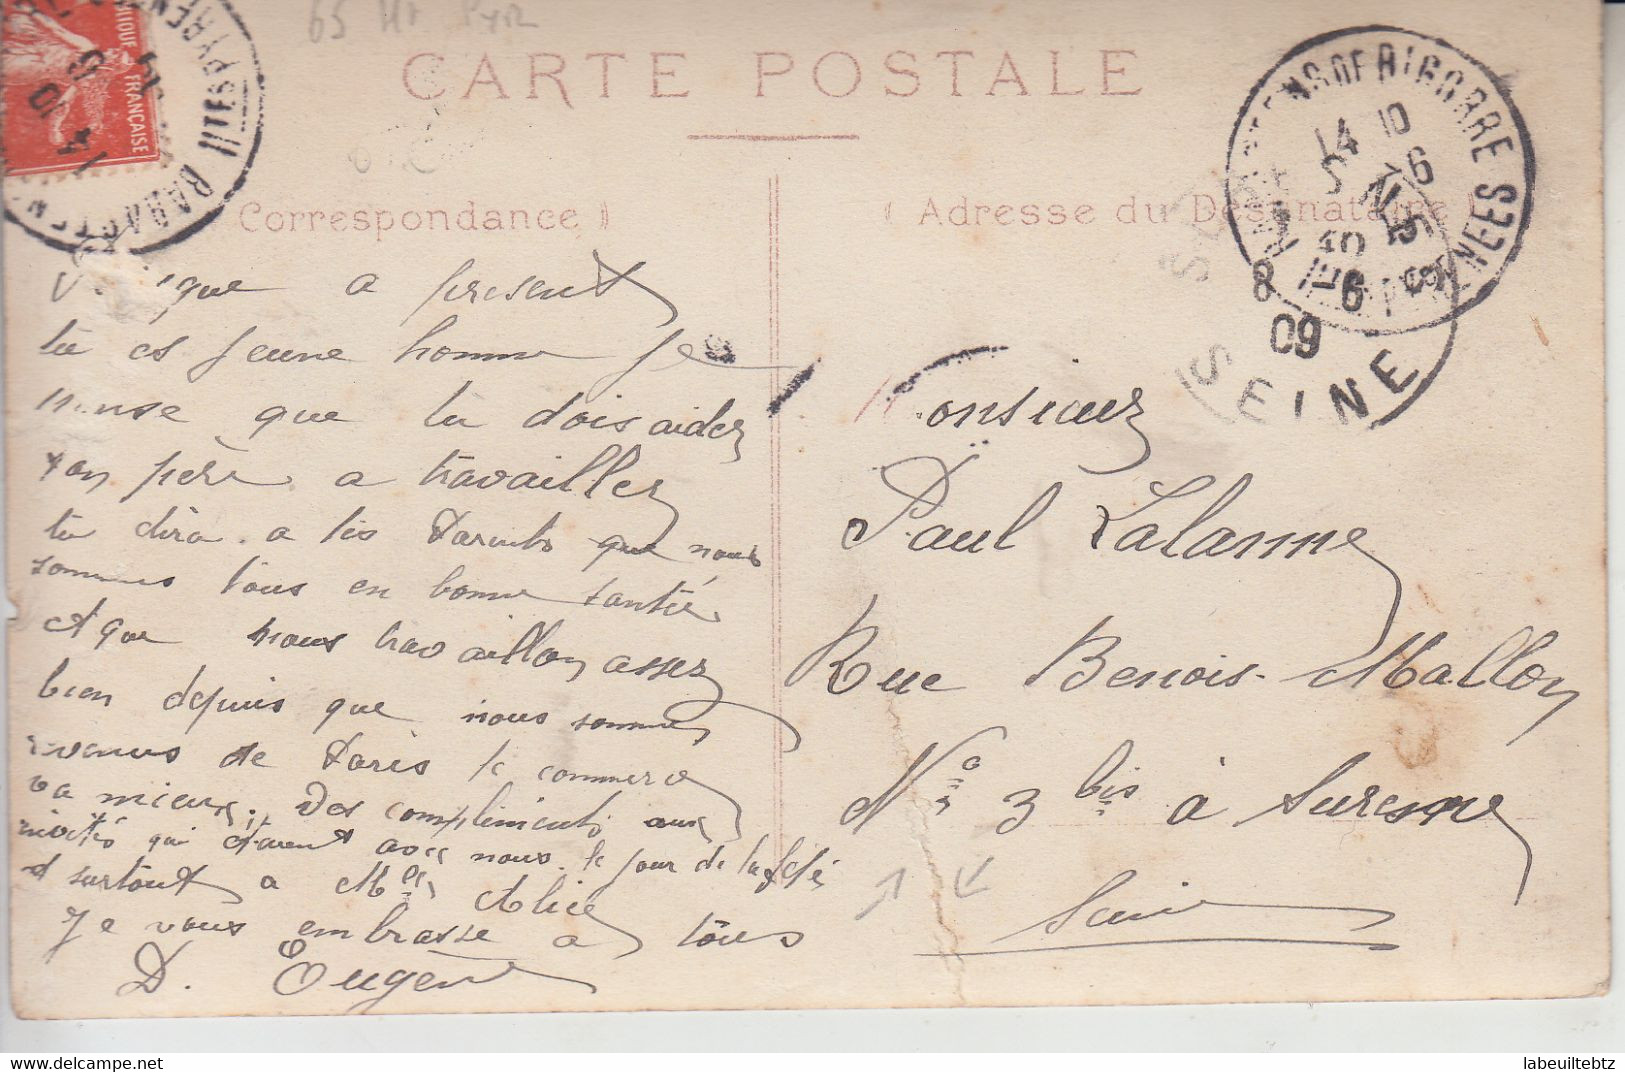 65 Ht. Pyr
CARTE POSTALE
FRANÇAISE
14 10
Correspondance
Adresse du Destinataire
BIGORRE
14 10
6
8 6
09
SEINE
que a present
tu es jeune homme je
pense que tu dois aider
ton père a travailler
tu dira a tes Parents que nous
sommes tous en bonne santée
et que nous travaillon assez
bien depuis que nous sommes
revenus de Paris le commerce
va mieux. Des compliments aux
invités qui étaient avec nous le jour de la fete
et surtout a Mlle Alice
Je vous embrasse a tous
D. Eugene
Monsieur
Paul Lalanne
Rue Benois-Mallon
No 3 bis à Suresne
Seine
labeuiltebtz
labeuiltebtz.com